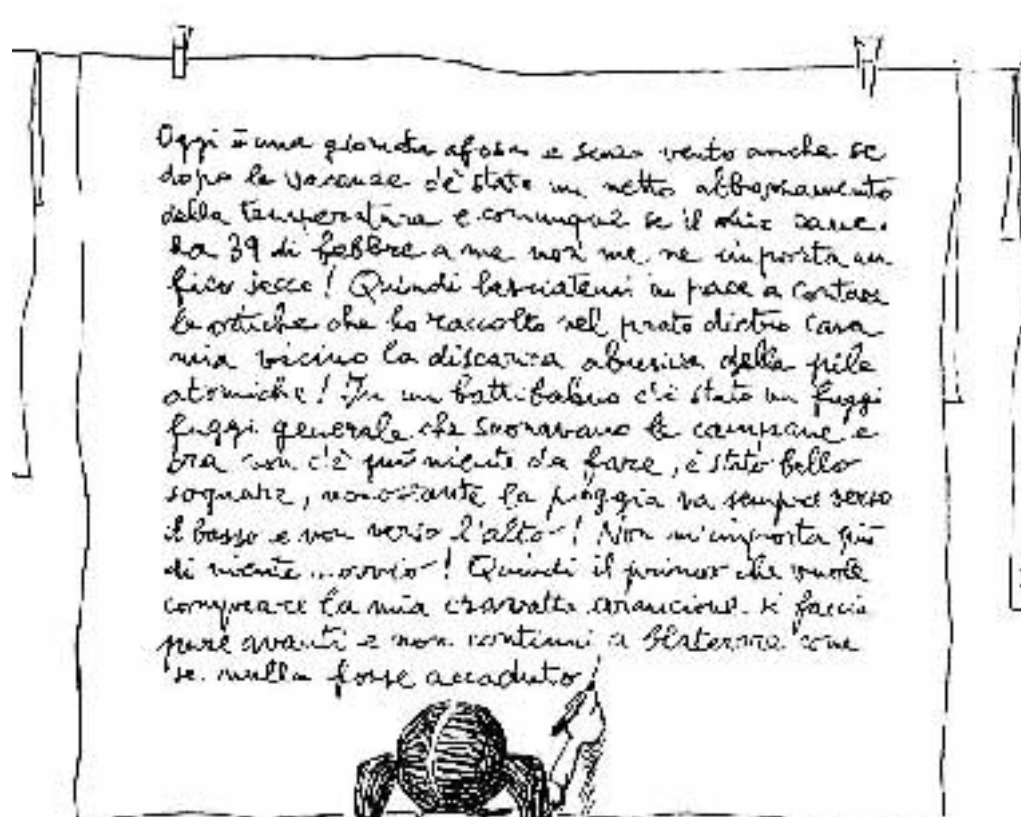 Oggi è una giornata afosa e senza vento anche se
dopo le vacanze c'è stato un netto abbassamento
della temperatura e comunque se il mio cane
ha 39 di febbre a me non me ne importa un
fico secco! Quindi lasciatemi in pace a contare
le ortiche che ho raccolto nel prato dietro casa
mia vicino la discarica abusiva delle pile
atomiche! In un battibaleno c'è stato un fuggi
fuggi generale che suonavano le campane e
ora non c'è più niente da fare, è stato bello
sognare, nonostante la pioggia va sempre verso
il basso e non verso l'alto! Non m'importa più
di niente...ovvio! Quindi il primo che vuole
comprare la mia cravatta arancione si faccia
pure avanti e non continui a blaterare come
se nulla fosse accaduto